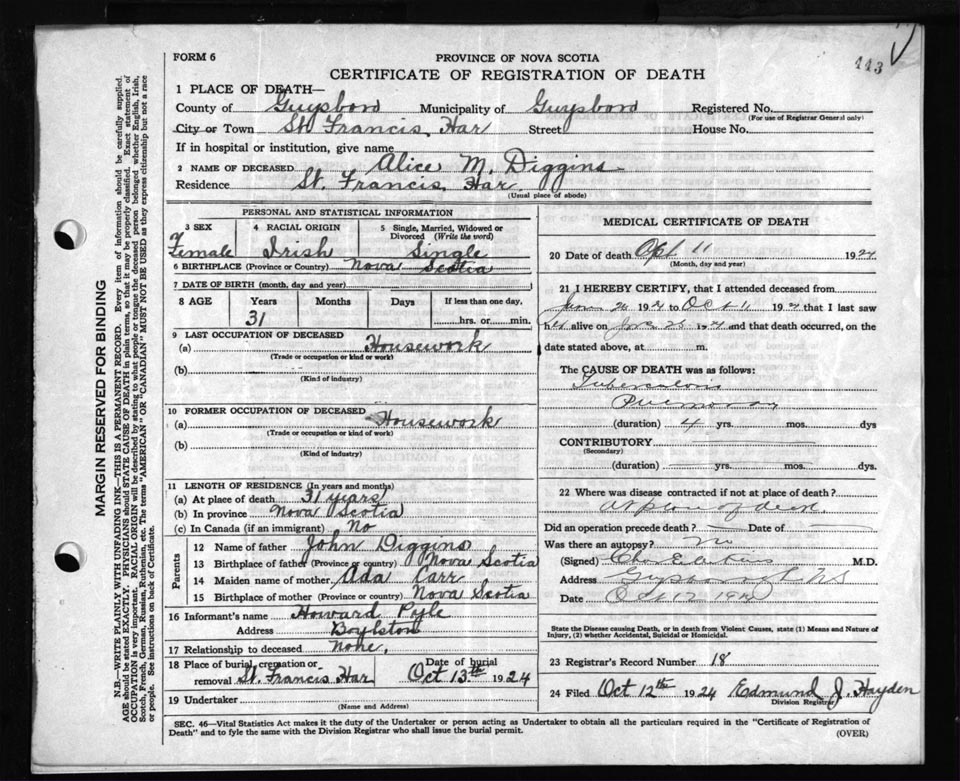 443
FORM 6
PROVINCE OF NOVA SCOTIA
CERTIFICATE OF REGISTRATION OF DEATH
1 PLACE OF DEATH—
County of Guysboro Municipality of Guysboro Registered No.
(For use of Registrar General only)
City or Town St. Francis Har Street House No.
If in hospital or institution, give name
2 NAME OF DECEASED Alice M. Diggins
Residence St. Francis Har
(Usual place of abode)
PERSONAL AND STATISTICAL INFORMATION
3 SEX 4 RACIAL ORIGIN 5 Single, Married, Widowed or Divorced (Write the word)
Female Irish Single
6 BIRTHPLACE (Province or Country) Nova Scotia
7 DATE OF BIRTH (month, day and year)
8 AGE Years Months Days If less than one day,
31 hrs. or min.
9 LAST OCCUPATION OF DECEASED
(a) Housework
(Trade or occupation or kind or work)
(b)
(Kind of industry)
10 FORMER OCCUPATION OF DECEASED
(a) Housework
(Trade or occupation or kind of work)
(b)
(Kind of industry)
11 LENGTH OF RESIDENCE (In years and months)
(a) At place of death 31 years
(b) In province Nova Scotia
(c) In Canada (if an immigrant) No
Parents
12 Name of father John Diggins
13 Birthplace of father (Province or country) Nova Scotia
14 Maiden name of mother Ada Carr
15 Birthplace of mother (Province or country) Nova Scotia
16 Informant's name Howard Pyle
Address Boylston
17 Relationship to deceased None.
18 Place of burial, cremation or removal St. Francis Har Date of burial Oct 13th 1924
19 Undertaker
(Name and Address)
MEDICAL CERTIFICATE OF DEATH
20 Date of death Oct 11 1924
(Month, day and year)
21 I HEREBY CERTIFY, that I attended deceased from
192 to Oct 11 192 that I last saw
h alive on 192 and that death occurred, on the
date stated above, at m.
The CAUSE OF DEATH was as follows:
Tuberculosis
Pulmonary
(duration) 4 yrs. mos. dys
CONTRIBUTORY
(Secondary)
(duration) yrs. mos. dys.
22 Where was disease contracted if not at place of death?
At place of death
Did an operation precede death? Date of
Was there an autopsy? No
(Signed) M.D.
Address Guysborough NS
Date Oct 12 192
State the Disease causing Death, or in death from Violent Causes, state (1) Means and Nature of
Injury, (2) whether Accidental, Suicidal or Homicidal.
23 Registrar's Record Number 18
24 Filed Oct 12th 1924 Edmund J. Hayden
Division Registrar
SEC. 46—Vital Statistics Act makes it the duty of the Undertaker or person acting as Undertaker to obtain all the particulars required in the "Certificate of Registration of
Death" and to fyle the same with the Division Registrar who shall issue the burial permit.
(OVER)
MARGIN RESERVED FOR BINDING
N.B.—WRITE PLAINLY WITH UNFADING INK—THIS IS A PERMANENT RECORD. Every item of information should be carefully supplied.
AGE should be stated EXACTLY. PHYSICIANS should STATE CAUSE OF DEATH in plain terms, so that it may be properly classified. Exact statement of
OCCUPATION is very important. RACIAL ORIGIN will be described by stating to what people or tongue the deceased person belonged whether English, Irish,
Scotch, French, German, Russian, Ruthenian, etc. The terms "AMERICAN" OR "CANADIAN" MUST NOT BE USED as they express citizenship but not a race
or people. See instructions on back of Certificate.